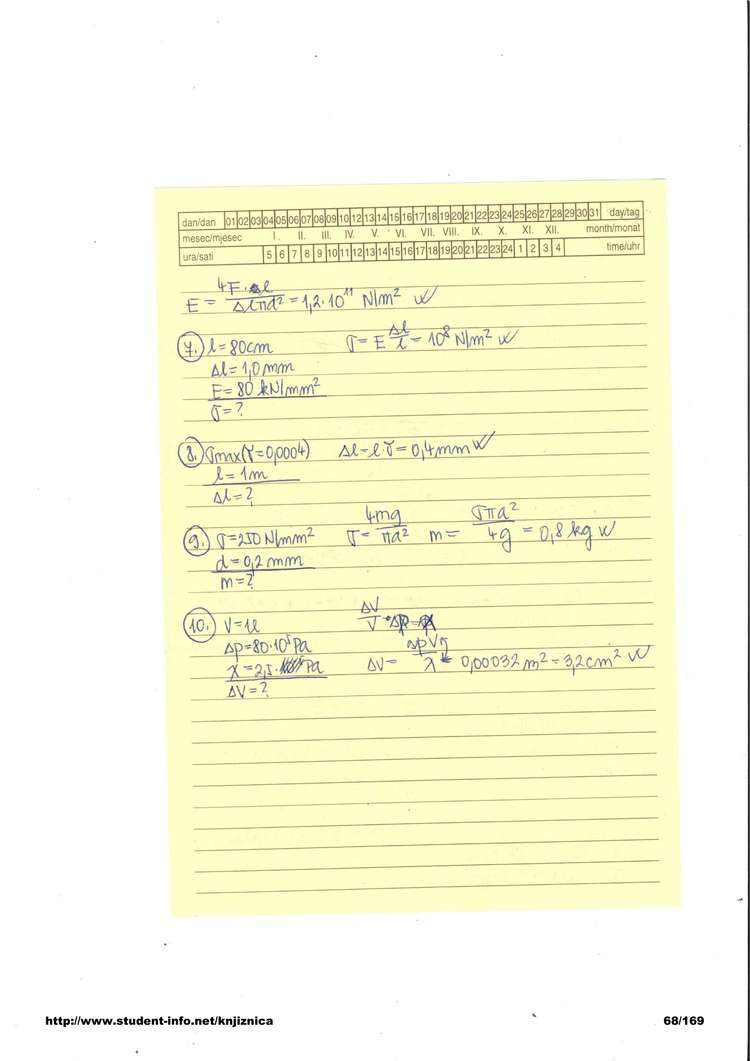 dan/dan 01 02 03 04 05 06 07 08 09 10 11 12 13 14 15 16 17 18 19 20 21 22 23 24 25 26 27 28 29 30 31 day/tag
mesec/mjesec I. II. III. IV. V. VI. VII. VIII. IX. X. XI. XII. month/monat
ura/sati 5 6 7 8 9 10 11 12 13 14 15 16 17 18 19 20 21 22 23 24 1 2 3 4 time/uhr
E = 4F·l / Δlπd² = 1,2·10¹¹ N/m²
7.) l = 80cm σ = E Δl/l = 10⁸ N/m²
Δl = 1,0 mm
E = 80 kN/mm²
σ = ?
8.) σmax(σ = 0,0004) Δl = l·σ = 0,4mm
l = 1m
Δl = ?
9.) σ = 250 N/mm² σ = 4mg / πd² m = σπd² / 4g = 0,8 kg
d = 0,2 mm
m = ?
10.) V = 1l ΔV / V
Δp = 80·10⁵ Pa
χ = 2,5· Pa ΔV = = 0,00032 m² = 3,2cm²
ΔV = ?
http://www.student-info.net/knjiznica 68/169